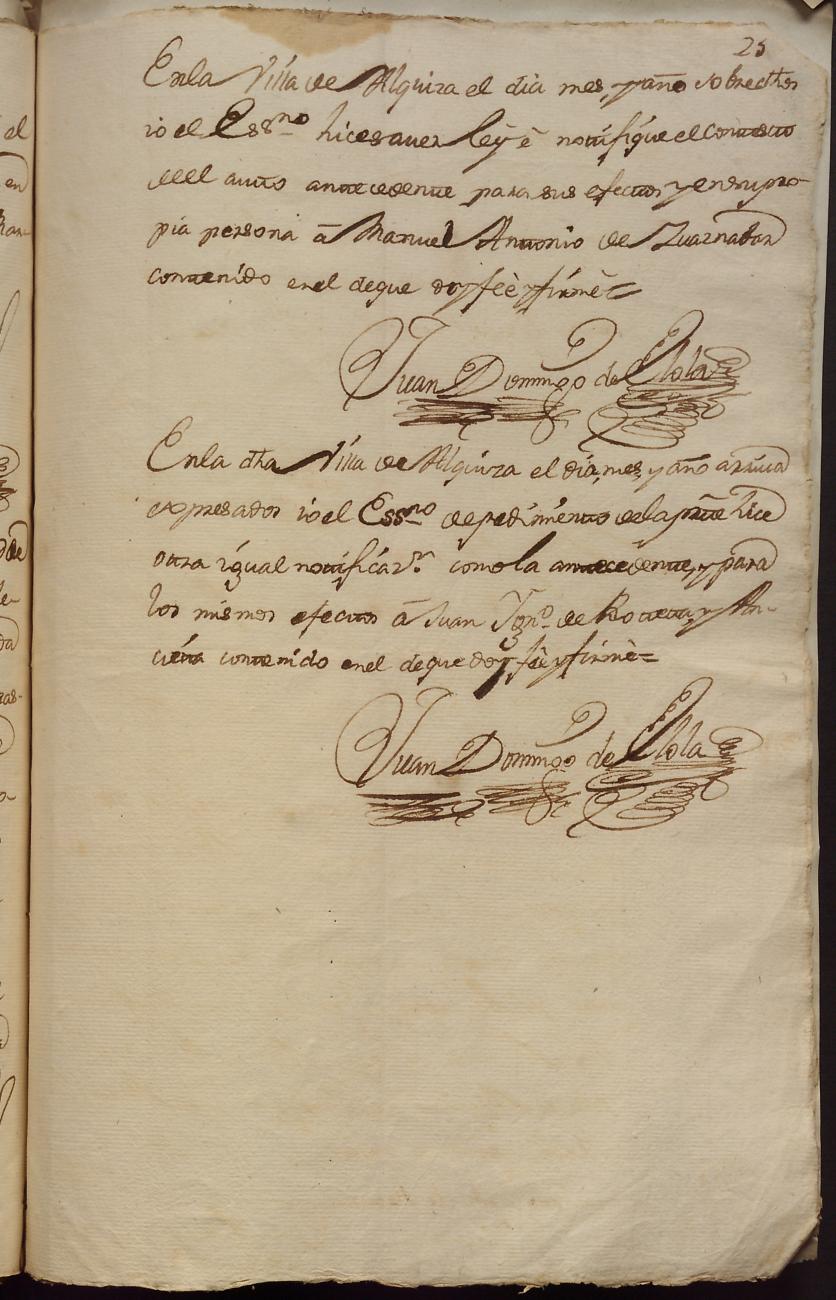 25
En la Villa de Alquiza el dia mes, y año sobre dhos
io el Essno hice saver ley è notifiqué el contexto
de el auto antecedente para sus efectos y en su pro-
pia persona â Manuel Antonio de Zuaznabar
contenido en el de que doy feè y firmè=
Juan Domingo de Elola
En la dha Villa de Alquiza el dia, mes, y año arriva
expresados io el Essno de pedimento de la pte hice
otra igual notificazn como la antecedente, y para
los mismos efectos â Juan Igno de
contenido en el de que doy feè y firmè=
Juan Domingo de Elola
el
en